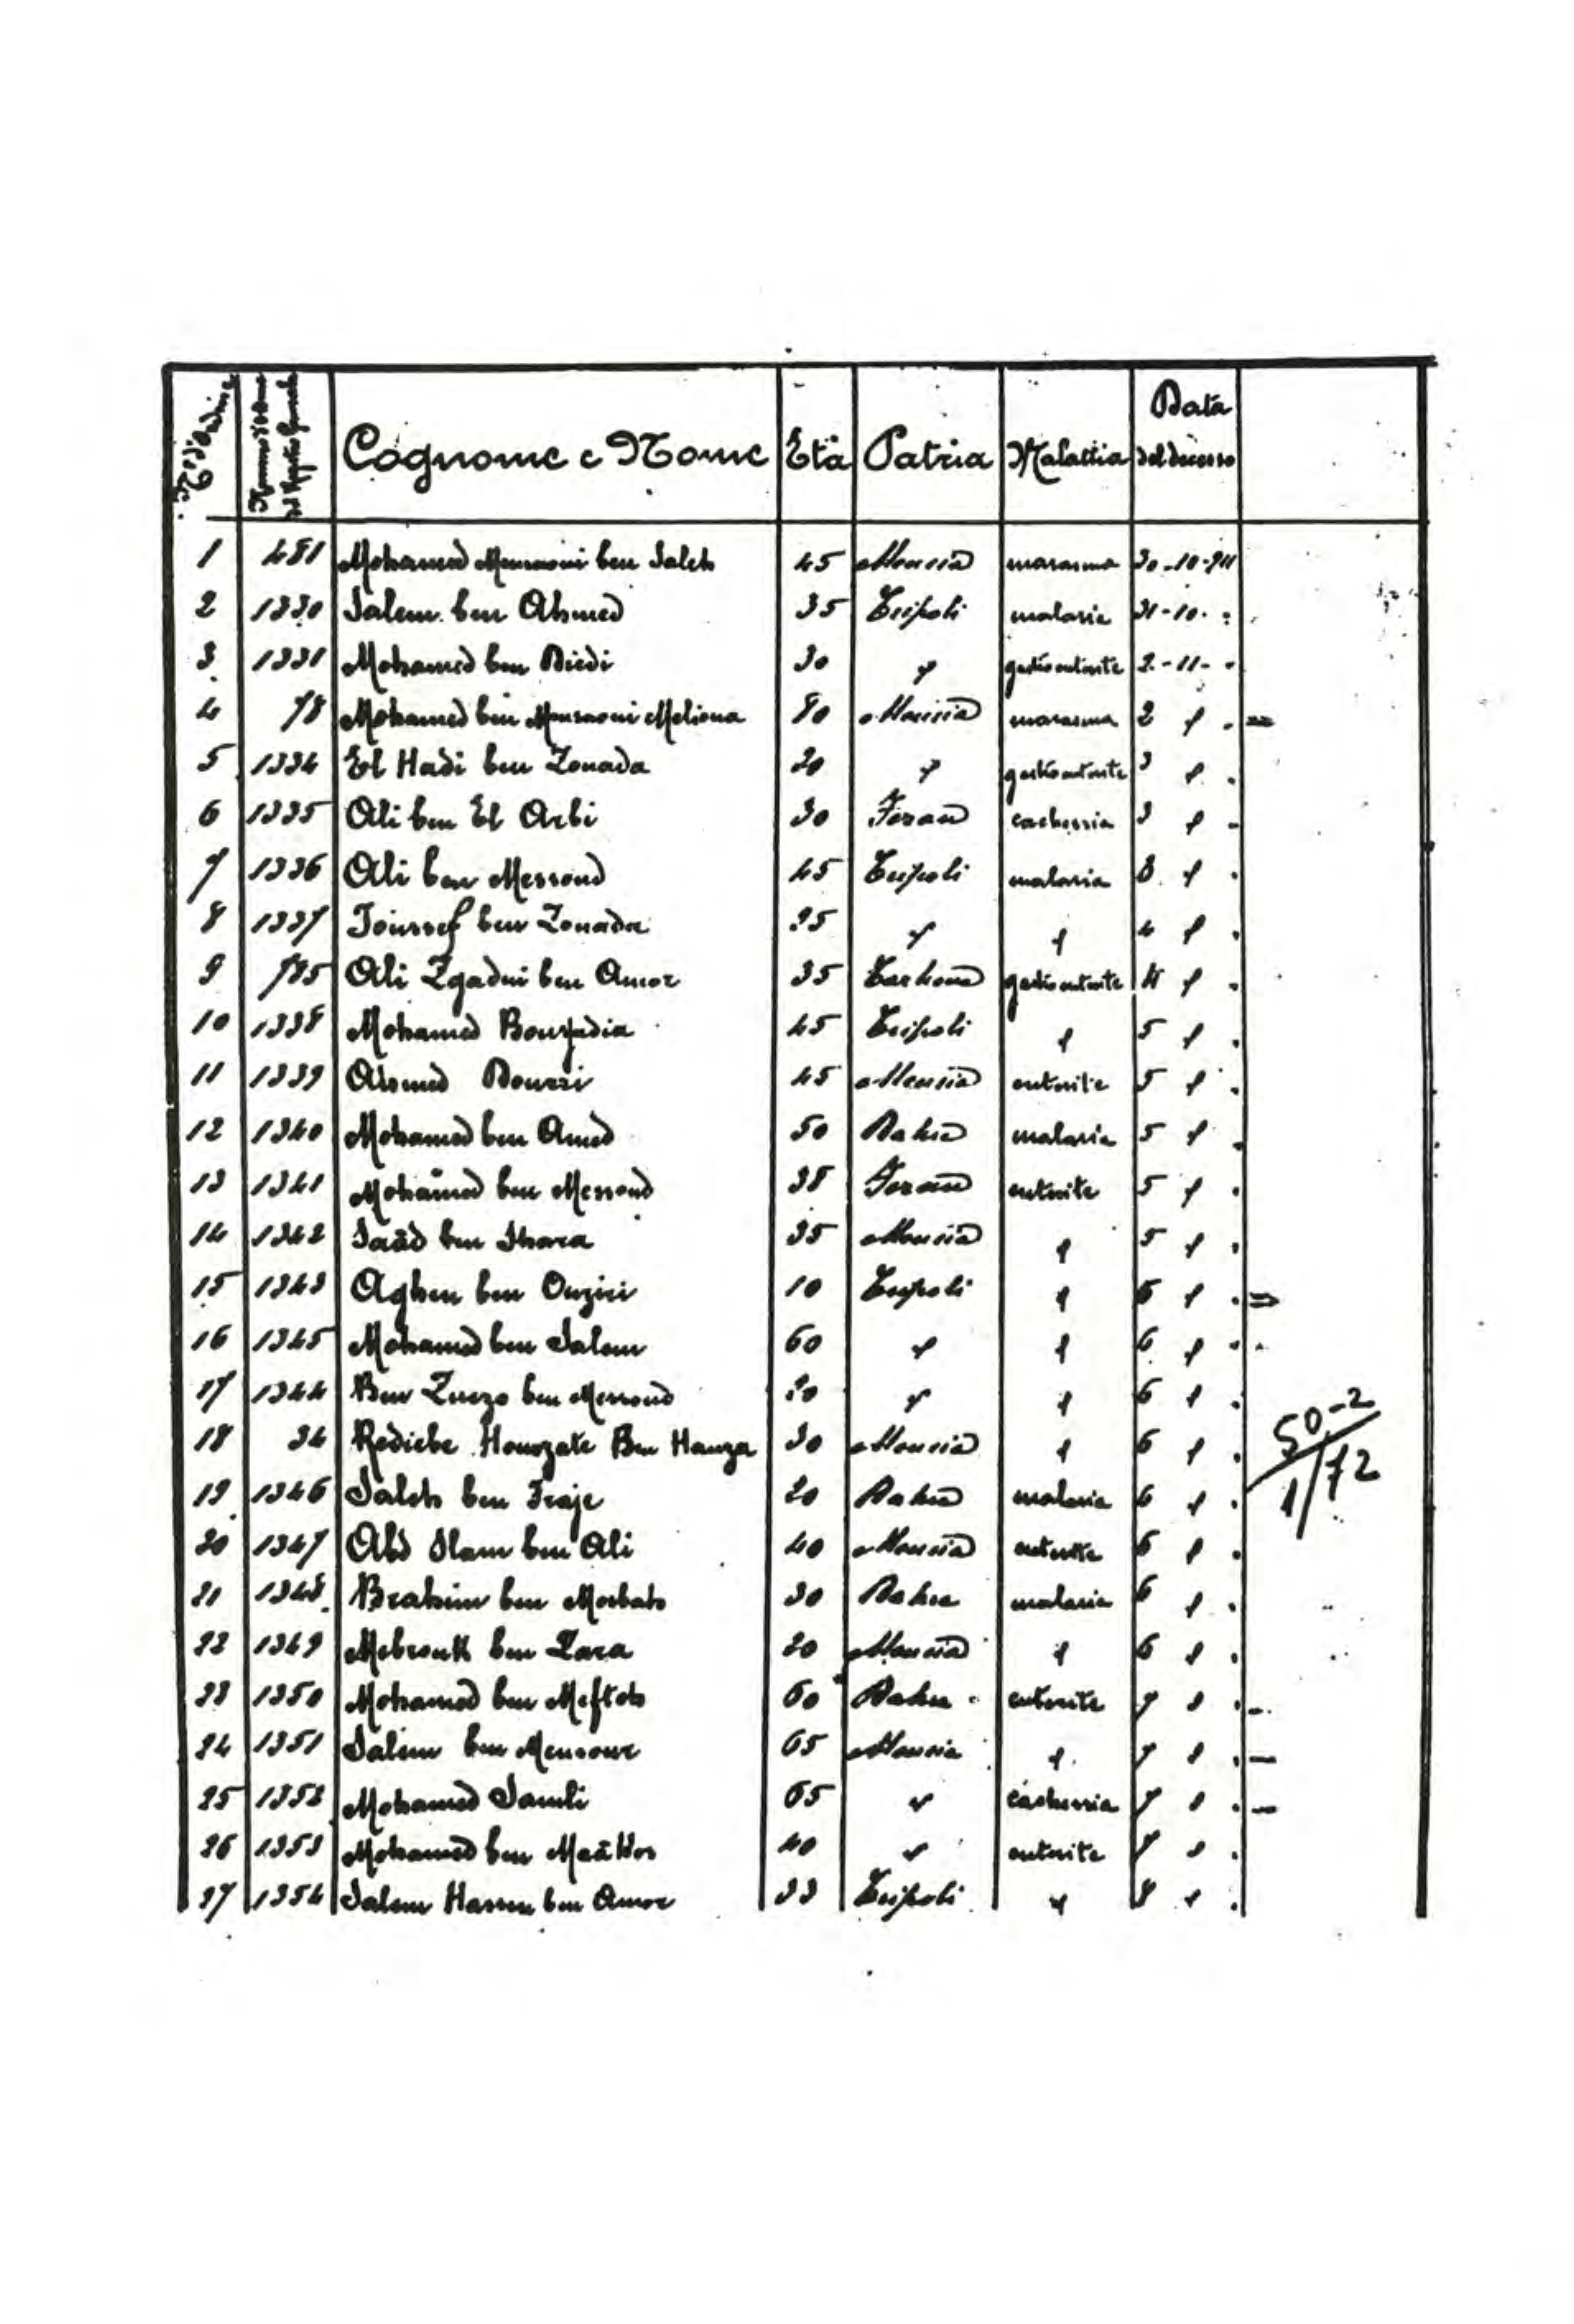 N. d'Ordine
Cognome e Nome Età Patria Malattia Data del decesso
1 481 Mohamed Mensaoui ben Saleh 45 Mensia marasma 30-10-911
2 1330 Salem ben Ahmed 35 Tripoli malaria 31-10- "
3 1331 Mohamed ben Diedi 30 " gastroenterite 2-11- "
4 78 Mohamed ben Mensaoui Meliana 80 Mensia marasma 2 " " =
5 1334 El Hadi ben Zouada 20 " gastroenterite 3 " "
6 1335 Ali ben El Arbi 30 Fezan cachessia 3 " "
7 1336 Ali ben Messoud 45 Tripoli malaria 3 " "
8 1337 Joussef ben Zouada 25 " " 4 " "
9 785 Ali Zgadni ben Amor 35 Tarhona gastroenterite 4 " "
10 1338 Mohamed 45 Tripoli " 5 " "
11 1339 Ahmed Dourri 45 Mensia enterite 5 " "
12 1340 Mohamed ben Amed 50 Dahra malaria 5 " "
13 1341 Mohamed ben Messoud 38 Fezan enterite 5 " "
14 1342 Saâd ben 35 Mensia " 5 " "
15 1343 Aghen ben Ouziri 10 Tripoli " 6 " " =
16 1345 Mohamed ben Salem 60 " " 6 " "
17 1344 Ben ben Messoud 20 " " 6 " "
18 34 Rediebe Ben Hamza 30 Mensia " 6 " "
50-2
1/72
19 1346 Saleh ben Fraje 20 Dahra malaria 6 " "
20 1347 Abd Slam ben Ali 40 Mensia enterite 6 " "
21 1348 Brahim ben Mosbah 30 Dahra malaria 6 " "
22 1349 Mebrouk ben Zara 20 Mensia " 6 " "
23 1350 Mohamed ben Meftah 60 Dahra enterite 7 " " -
24 1351 Salem ben Mensour 65 Mensia " 7 " " -
25 1352 Mohamed 65 " cachessia 7 " " -
26 1353 Mohamed ben 40 " enterite 7 " "
27 1354 Salem Hassen ben Amor 33 Tripoli " 8 " "